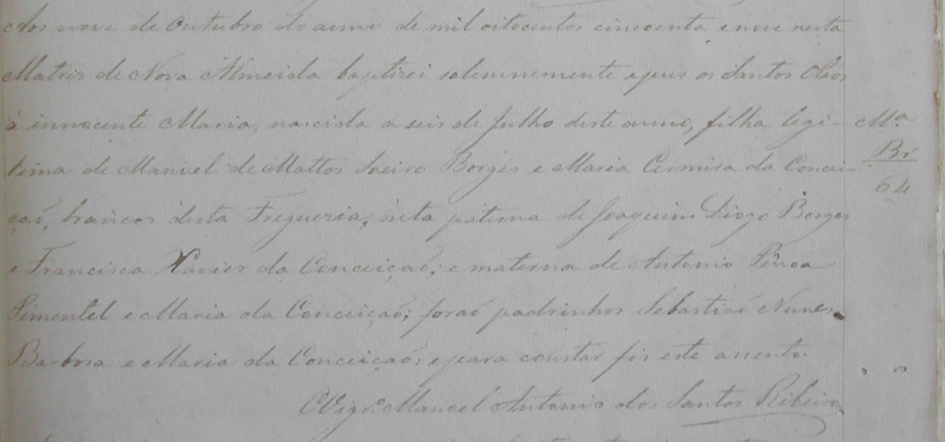 Aos nove de Outubro do anno de mil oitocentos cincoenta e nove nesta
Matriz de Nova Almeida baptizei solemnemente e pus os Santos Oleos
à innocente Maria, nascida a seis de Julho deste anno, filha legi-
tima de Manoel de Mattos Borges e Maria da Concei-
çaõ, brancos desta Freguezia, néta paterna de Joaquim Diogo Borges
e Francisca Xavier da Conceiçaõ; e materna de Antonio
Pimentel e Maria da Conceiçaõ; foraõ padrinhos Sebastiaõ Nunes
Barbosa e Maria da Conceiçaõ: e para constar fis este assento.
O Vigr.º Manoel Antonio dos Santos Ribeiro
Mª
Br
64